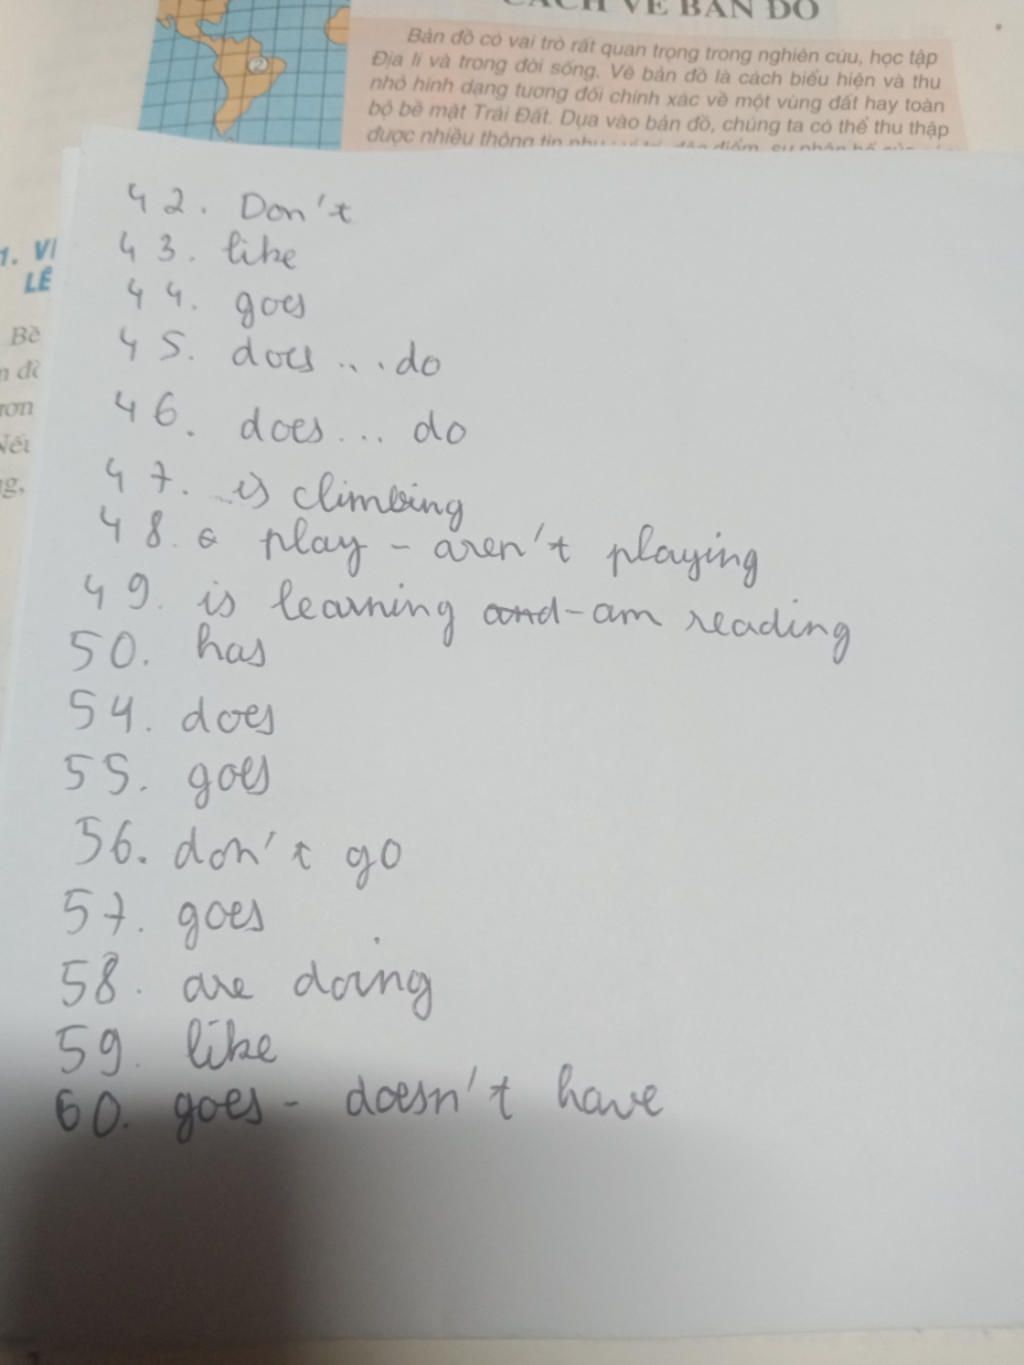 CÁCH VẼ BẢN ĐỒ
Bản đồ có vai trò rất quan trọng trong nghiên cứu, học tập
Địa lí và trong đời sống. Vẽ bản đồ là cách biểu hiện và thu
nhỏ hình dạng tương đối chính xác về một vùng đất hay toàn
bộ bề mặt Trái Đất. Dựa vào bản đồ, chúng ta có thể thu thập
được nhiều thông tin như
2
1. VI
LÊ
Bề
42. Don't
43. like
44. goes
45. does ... do
46. does ... do
47. is climbing
48. play - aren't playing
49. is learning and - am reading
50. has
54. does
55. goes
56. don't go
57. goes
58. are doing
59. like
60. goes - doesn't have